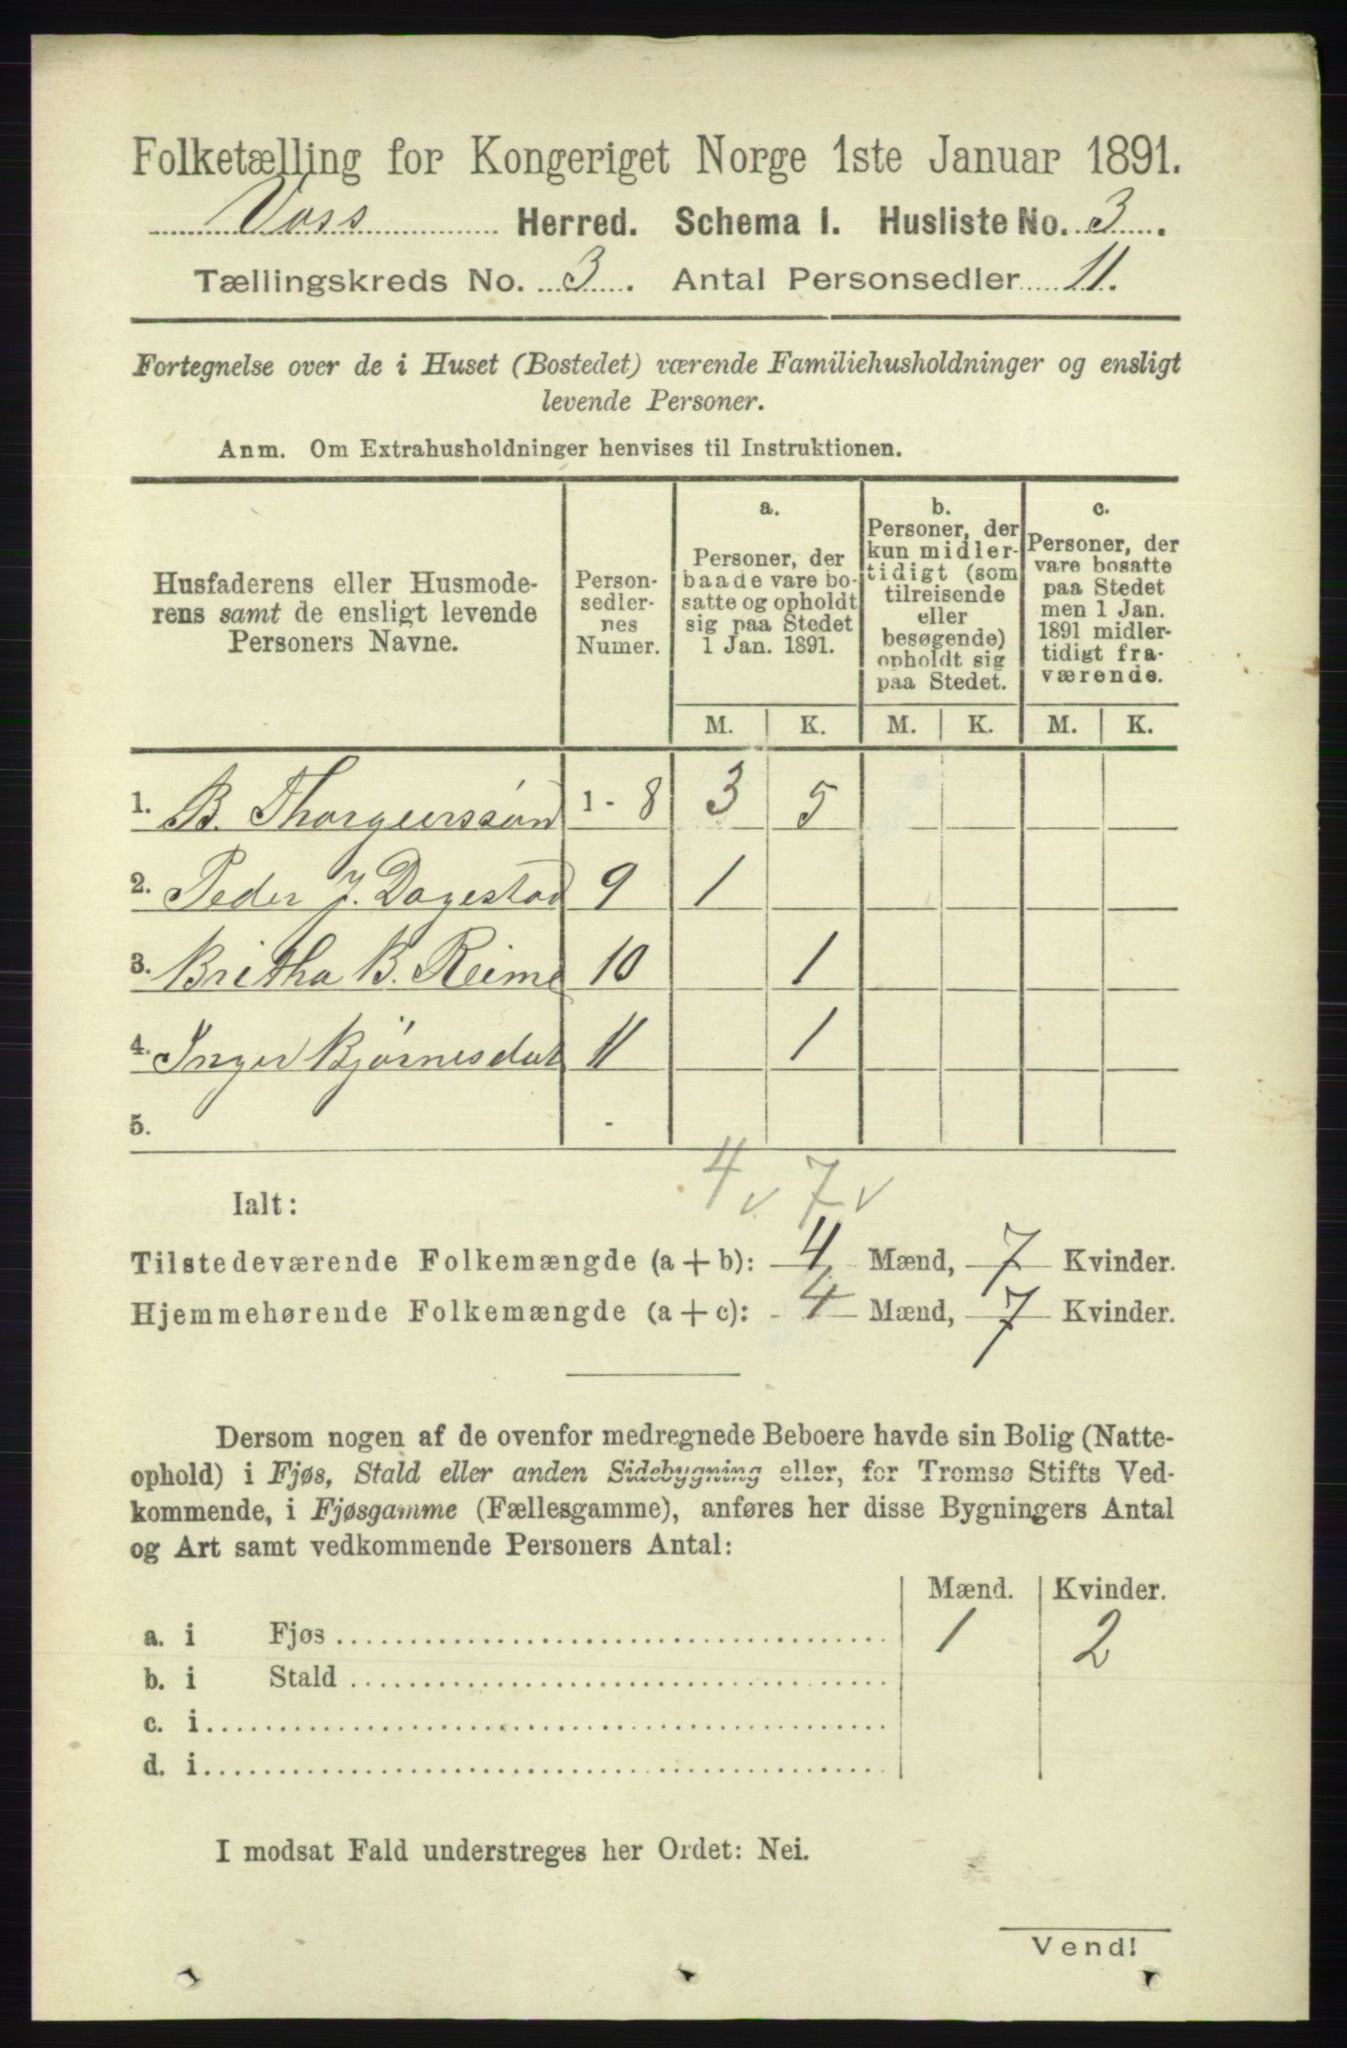 Folketælling for Kongeriget Norge 1ste Januar 1891.
Voss Herred. Schema I. Husliste No. 3.
Tællingskreds No. 3. Antal Personsedler 11.
Fortegnelse over de i Huset (Bostedet) værende Familiehusholdninger og ensligt
levende Personer.
Anm. Om Extrahusholdninger henvises til Instruktionen.
Husfaderens eller Husmode-
rens samt de ensligt levende
Personers Navne.
Person-
sedler-
nes
Numer.
a.
Personer, der
baade vare bo-
satte og opholdt
sig paa Stedet
1 Jan. 1891.
b.
Personer, der
kun midler-
tidigt (som
tilreisende
eller
besøgende)
opholdt sig
paa Stedet.
c.
Personer, der
vare bosatte
paa Stedet
men 1 Jan.
1891 midler-
tidigt fra-
værende.
M. K. M. K. M. K.
1. B. Thorgeirssøn 1 - 8 3 5
2. Peder J. Dagestad 9 1
3. Britha B. Reime 10 1
4. Inger Bjørnesdat 11 1
5. -
4 v 7 v
Ialt:
Tilstedeværende Folkemængde (a + b): 4 Mænd, 7 Kvinder.
Hjemmehørende Folkemængde (a + c): 4 Mænd, 7 Kvinder.
Dersom nogen af de ovenfor medregnede Beboere havde sin Bolig (Natte-
ophold) i Fjøs, Stald eller anden Sidebygning eller, for Tromsø Stifts Ved-
kommende, i Fjøsgamme (Fællesgamme), anføres her disse Bygningers Antal
og Art samt vedkommende Personers Antal:
Mænd. Kvinder.
a. i Fjøs 1 2
b. i Stald
c. i
d. i
I modsat Fald understreges her Ordet: Nei.
Vend!